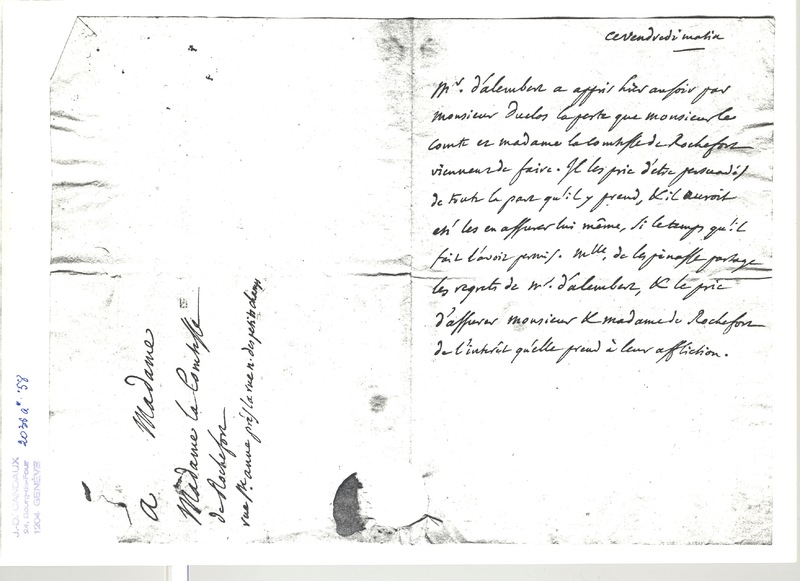 ce vendredi matin
Mr. d'alembert a appris hier au soir par
monsieur Duclos la perte que monsieur le
comte et madame la Comtesse de Rochefort
viennent de faire. Il les prie d'etre persuadés
de toute la part qu'il y prend, & il auroit
eté les en assurer lui même, si le temps qu'il
fait l'avoit permis. Mlle. de lespinasse partage
les regrets de Mr. d'alembert, & le prie
d'assurer monsieur & madame de Rochefort
de l'interêt qu'elle prend à leur affliction.
a Madame
Madame la Comtesse
de Rochefort
rue ste anne près la rue n. des petits champs
J.-D. CANDAUX
1204 GENÈVE